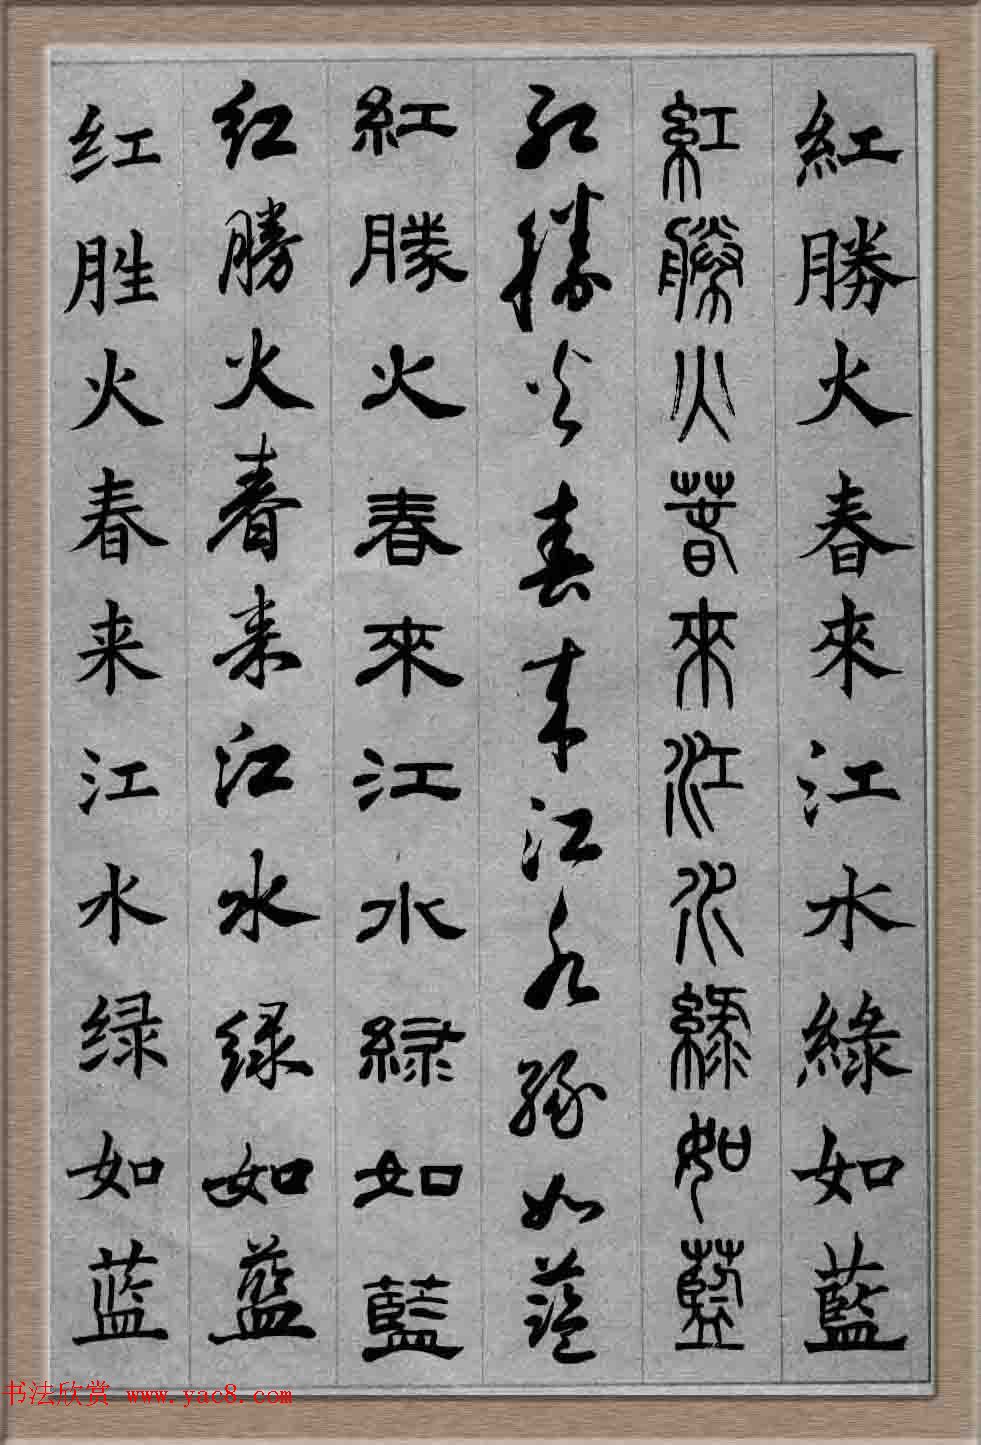 紅勝火春來江水綠如藍
紅勝火萅來江水綠如藍
紅勝火春来江水綠如蓝
紅勝火春來江水緑如藍
红勝火春来江水绿如蓝
红胜火春来江水绿如蓝
书法欣赏 www.yac8.com